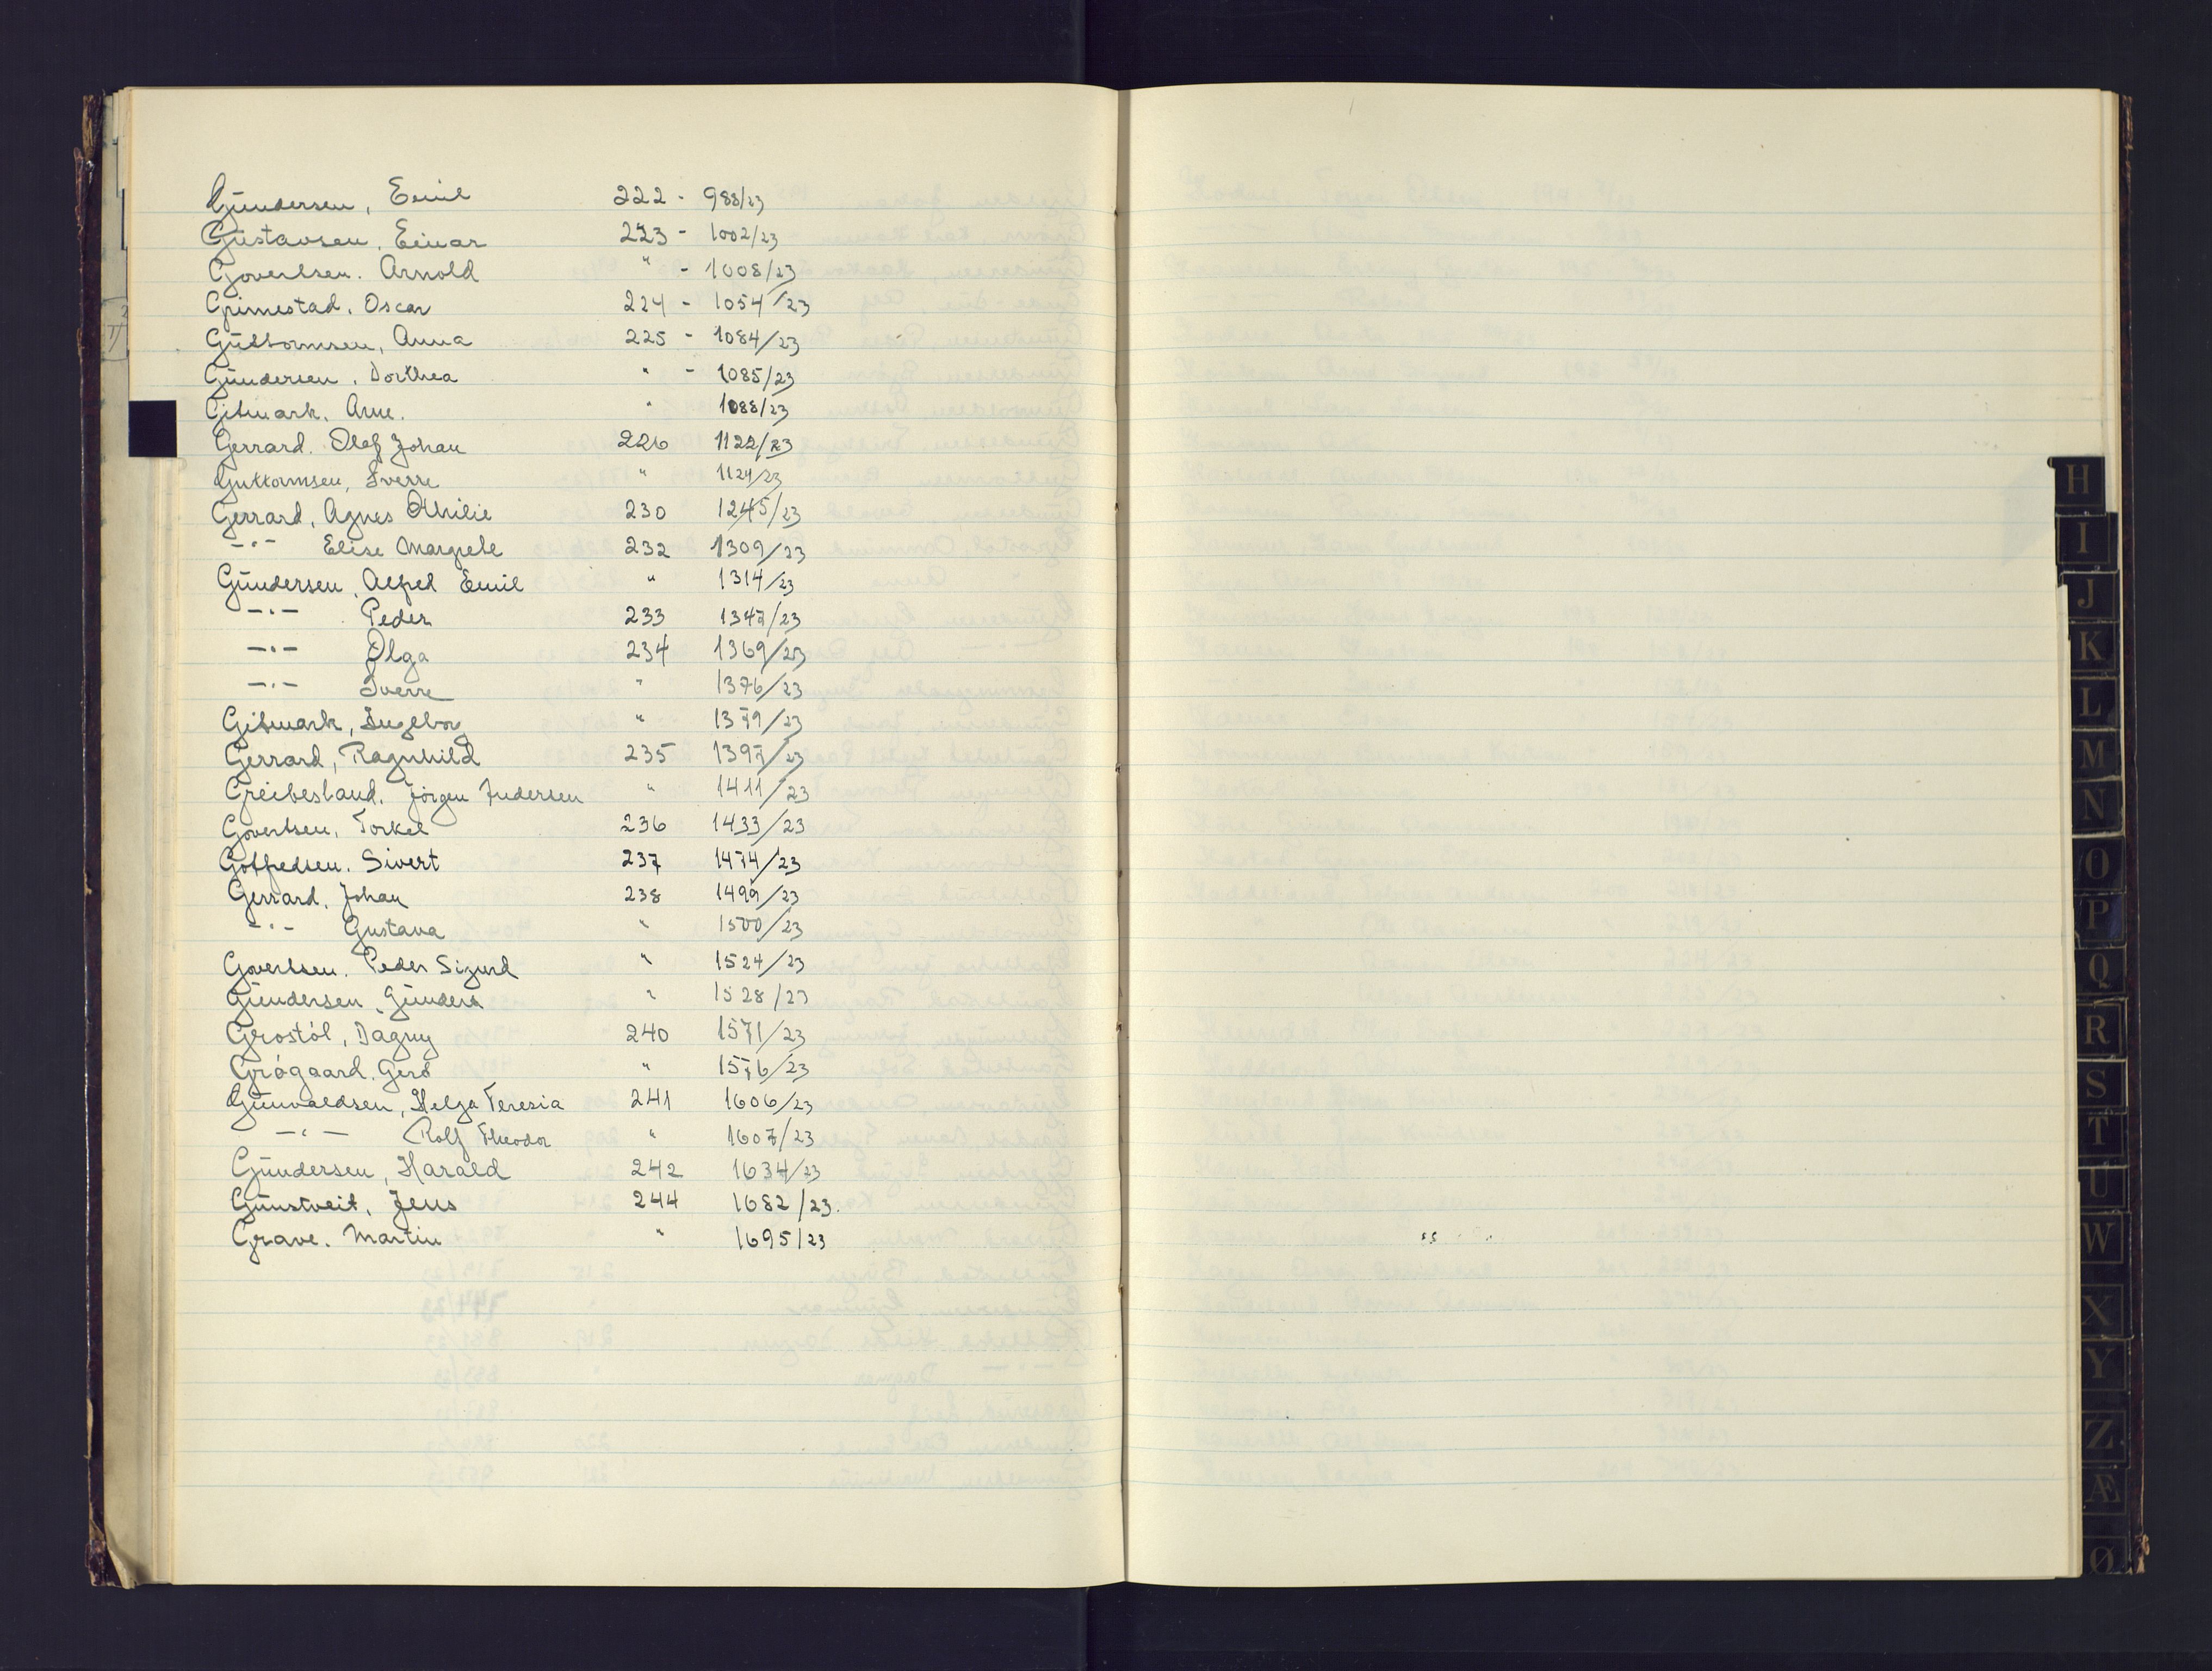 Gundersen, Emil 222 - 988/23
Gustavsen, Einar 223 - 1002/23
Govertsen. Arnold " - 1008/23
Grimestad, Oscar 224 - 1054/23
Guttormsen, Anna 225 - 1084/23
Gundersen, Dorthea " - 1085/23
Gitmark, Arne. " 1088/23
Gerrard. Olaf Johan 226 1122/23
Guttormsen, Sverre " 1124/23
Gerrard, Agnes Othilie 230 1245/23
-"- Elise Margrete 232 1309/23
Gundersen, Alfred Emil " 1314/23
-"- Peder 233 1347/23
-"- Olga 234 1369/23
-"- Sverre " 1376/23
Gitmark, Ingebor " 1379/23
Gerrard, Ragnhild 235 1397/23
Greibesland, Jörgen Andersen " 1411/23
Govertsen, Torkel 236 1433/23
Gotfredsen. Sivert 237 1474/23
Gerrard, Johan 238 1499/23
-"- Gustava " 1500/23
Govertsen. Peder Sigurd " 1524/23
Gundersen, Gunders " 1528/23
Grostøl, Dagny 240 1571/23
Grógaard, Gerd " 1576/23
Gunvaldsen, Helga Teresia 241 1606/23
-"- Rolf Theodor " 1607/23
Gundersen, Harald 242 1634/23
Gunstveit, Jens 244 1682/23.
Grave. Martin " 1695/23
H
I
J
K
L
M
N
O
P
Q
R
S
T
U
W
X
Y
Z
Æ
Ø